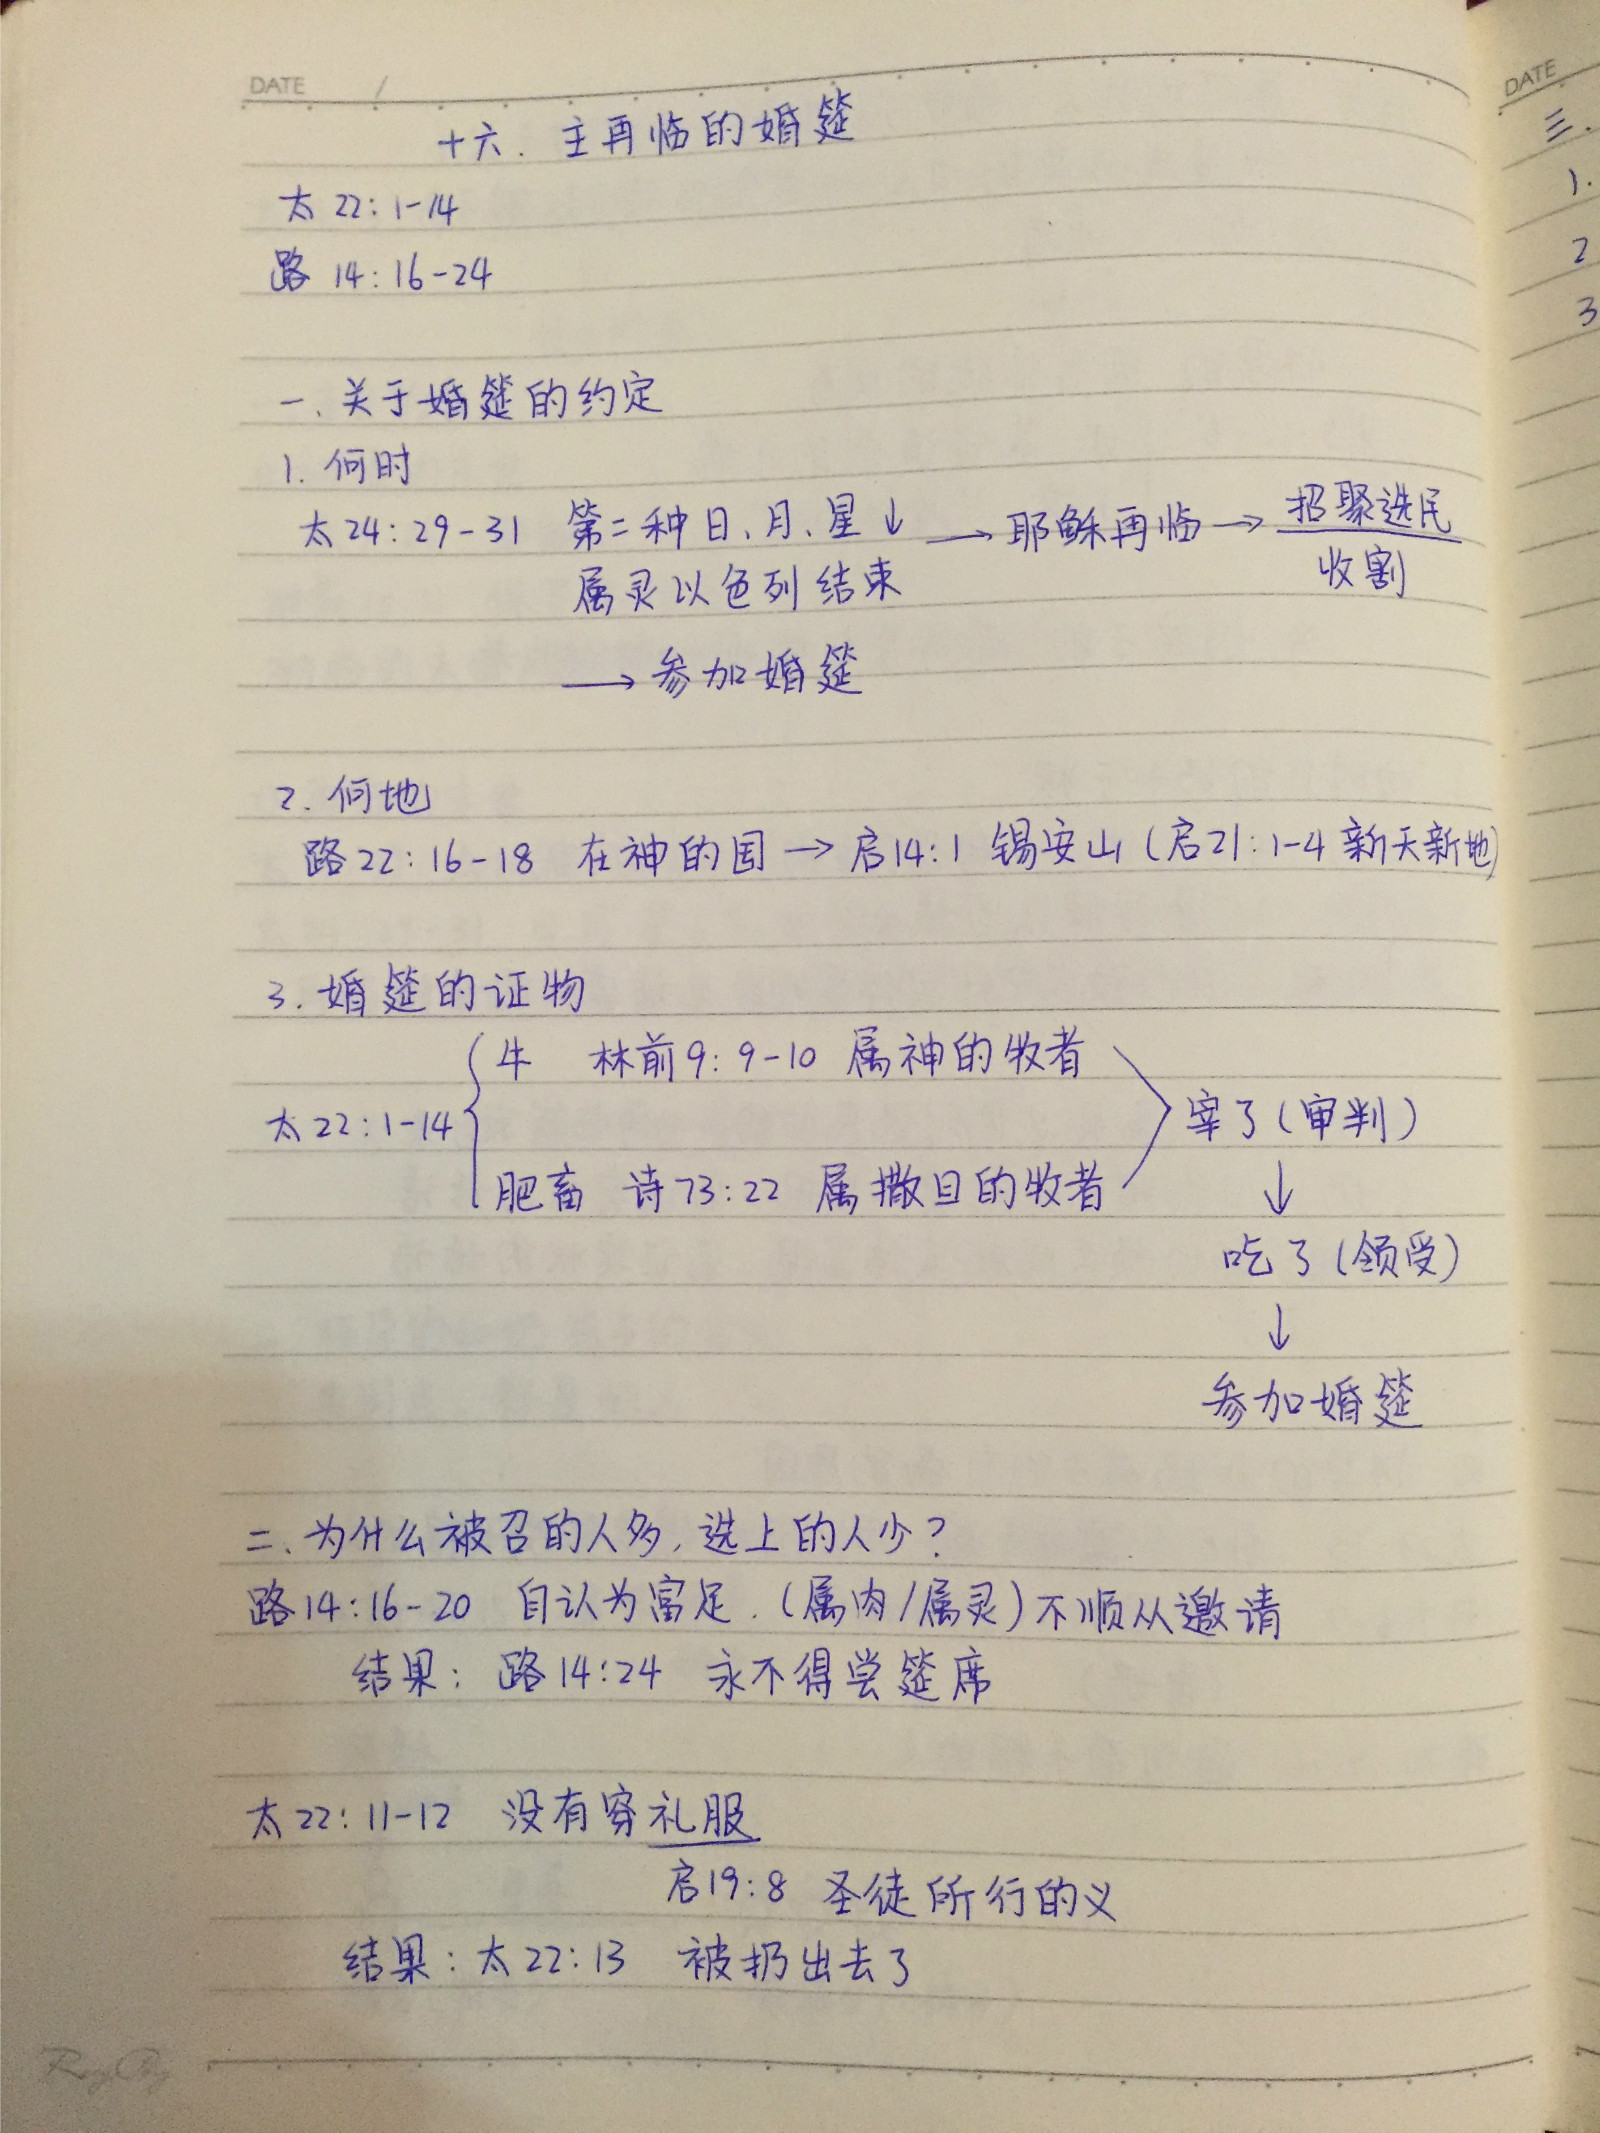 DATE /
十六. 主再临的婚筵
太 22:1-14
路 14:16-24
一、关于婚筵的约定
1. 何时
太 24:29-31 第二种日、月、星↓ → 耶稣再临 → 招聚选民
属灵以色列结束 收割
→ 参加婚筵
2. 何地
路22:16-18 在神的国 → 启14:1 锡安山(启21:1-4 新天新地)
3. 婚筵的证物
牛 林前9:9-10 属神的牧者
太22:1-14 宰了(审判)
肥畜 诗73:22 属撒旦的牧者
↓
吃了(领受)
↓
参加婚筵
二、为什么被召的人多,选上的人少?
路14:16-20 自认为富足.(属肉/属灵)不顺从邀请
结果: 路14:24 永不得尝筵席
太22:11-12 没有穿礼服
启19:8 圣徒所行的义
结果:太22:13 被扔出去了
DATE
三.
1.
2
3